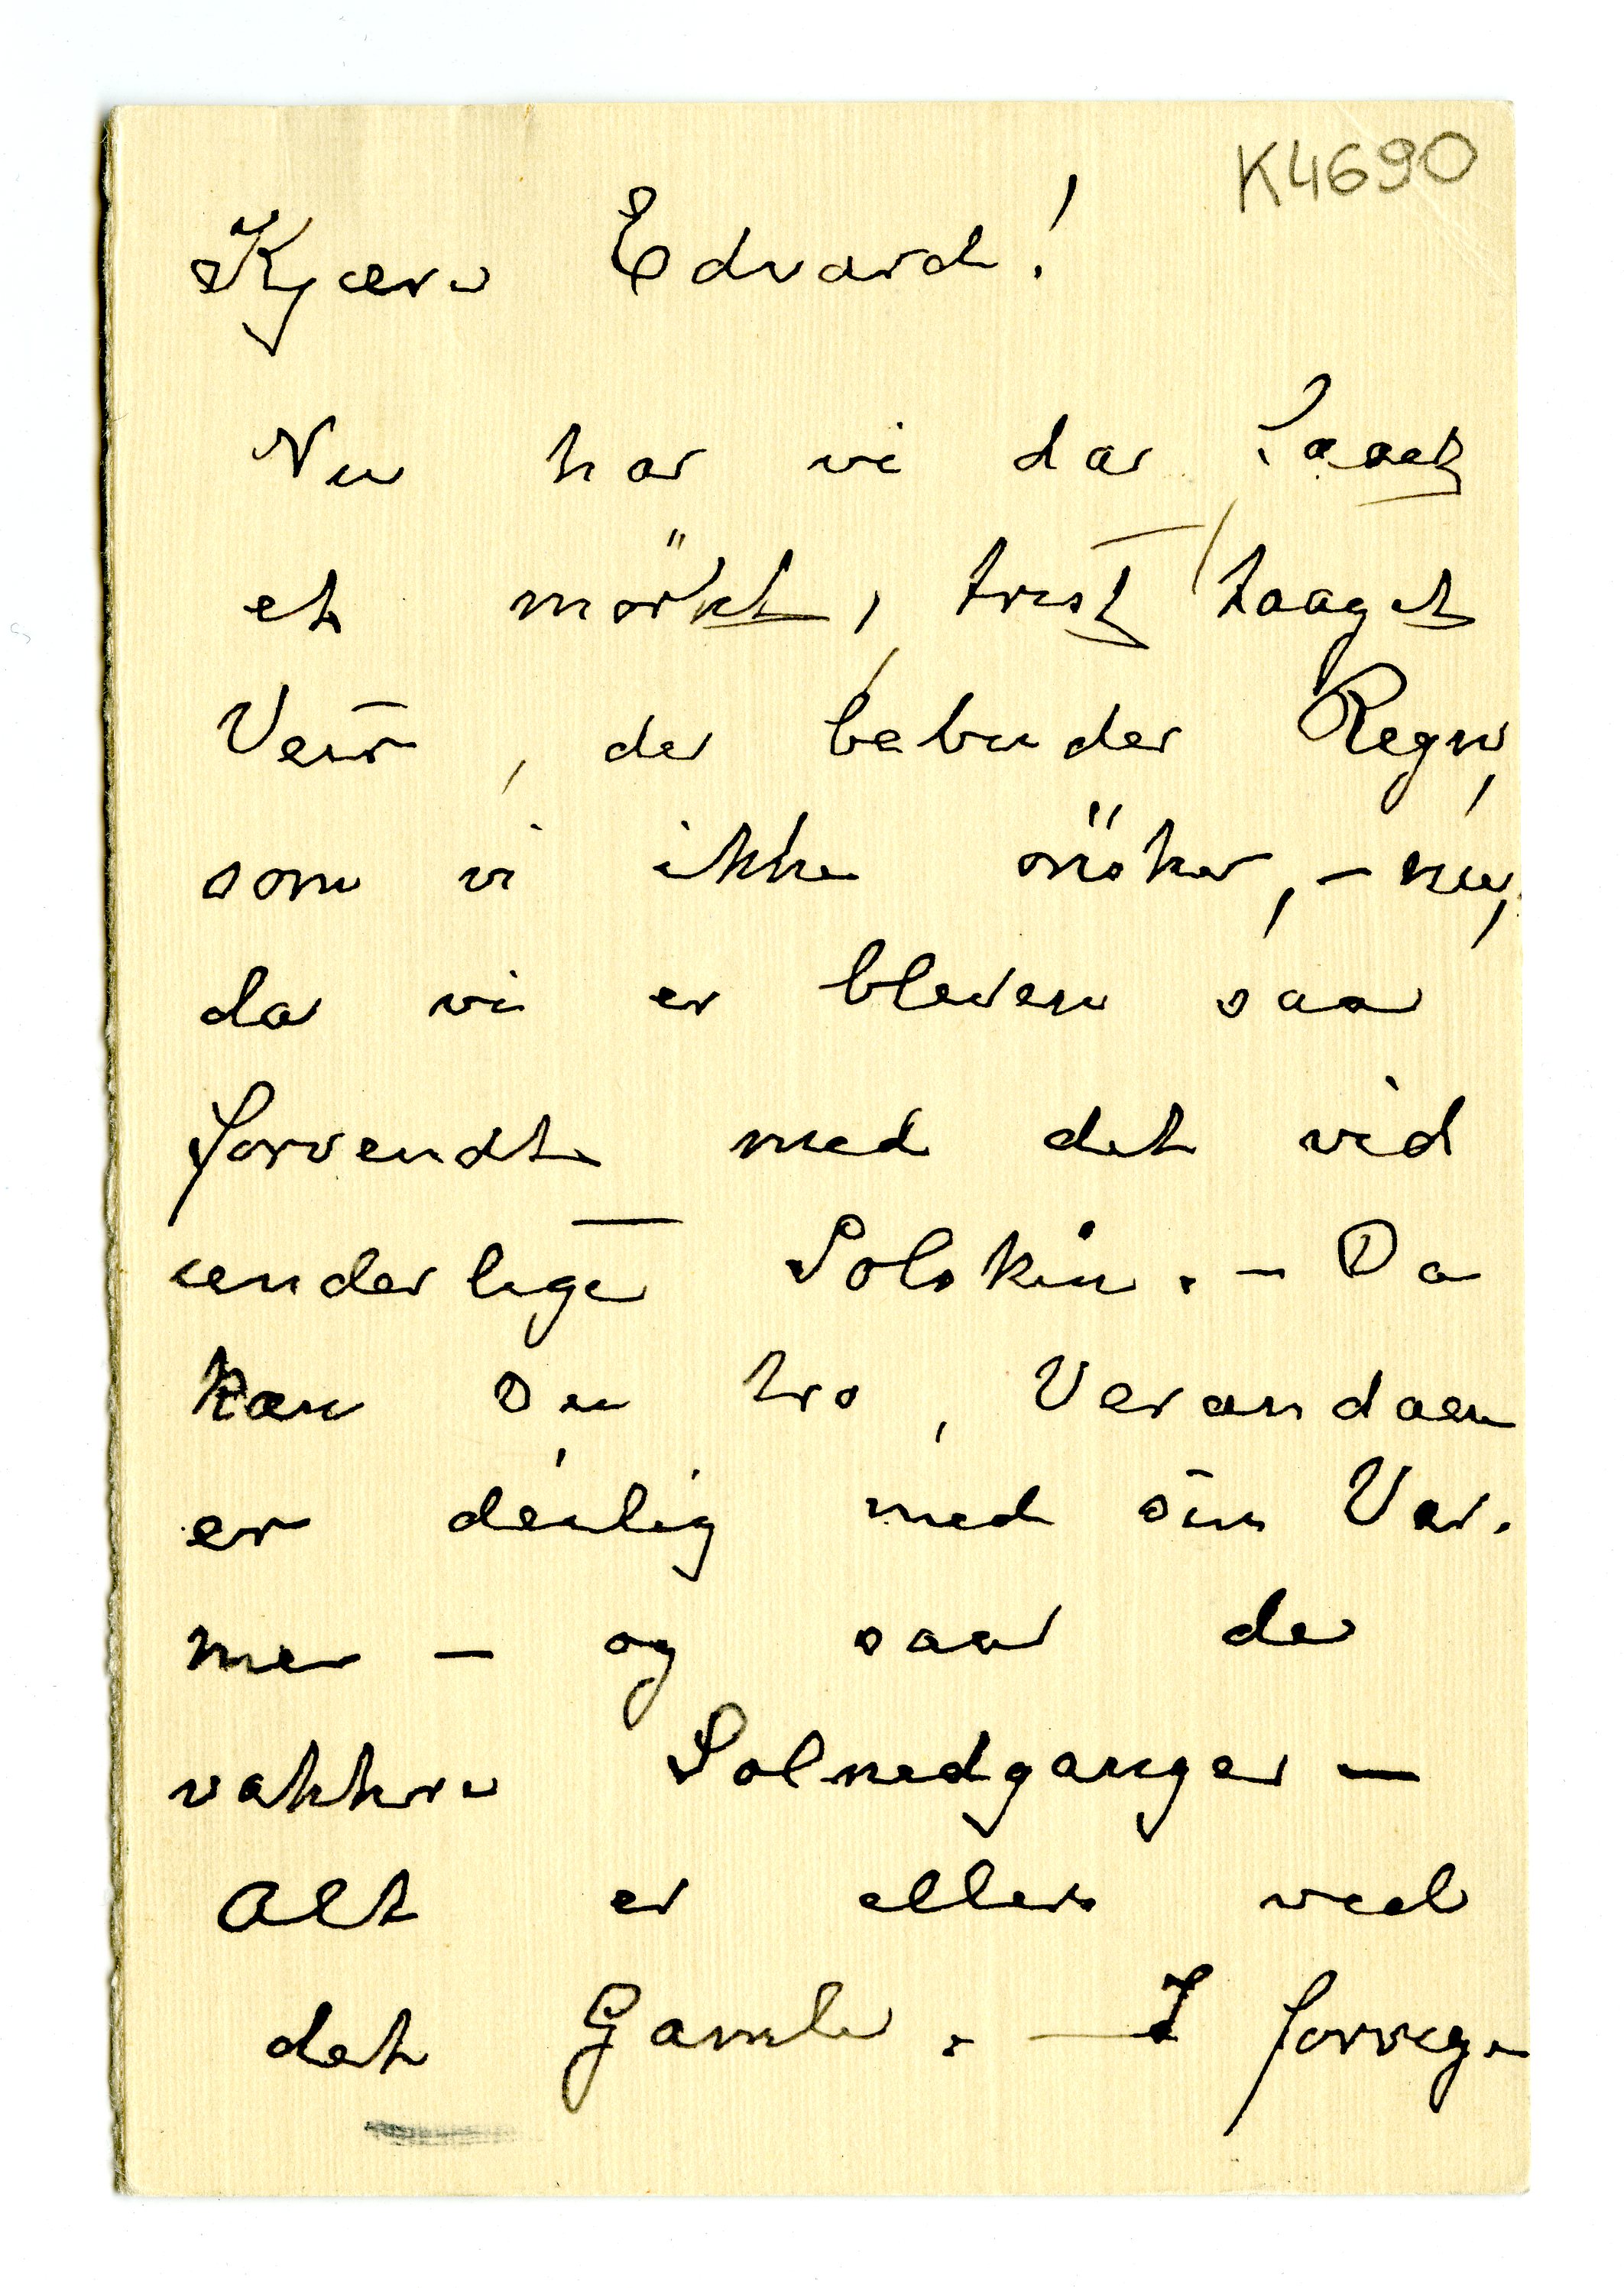 K4690
Kjære Edvard!
Nu har vi da faaet
et mörkt, trist, taaget
Veir, der bebuder Regn,
som vi ikke önsker, – nu,
da vi er bleven saa
forvendt med det vid
underlige Solskin. – Da
kan Du tro, Verandaen
er deilig med sin Var-
me – og saa de
vakkre Solnedganger –
Alt er ellers ved
det Gamle. – I forrige